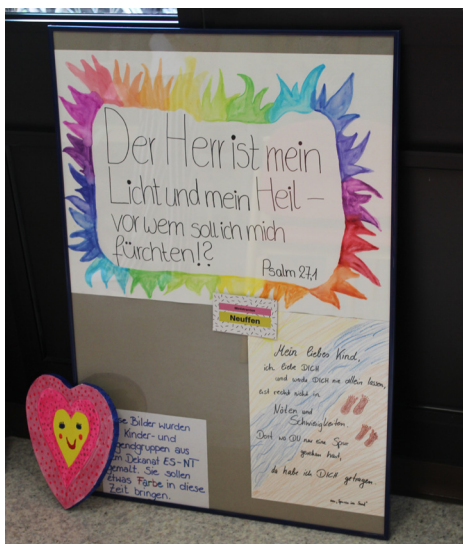 Der Herr ist mein
Licht und mein Heil –
vor wem soll ich mich
fürchten!?
Psalm 27,1
Neuffen
Mein liebes Kind,
ich liebe DICH
und werde DICH nie allein lassen,
erst recht nicht in
Nöten und
Schwierigkeiten
Dort wo DU nur eine Spur
gesehen hast,
da habe ich DICH getragen.
Bilder wurden
Kinder- und
gendgruppen aus
Dekanat ES-NT
emalt. Sie sollen
etwas Farbe in diese
Zeit bringen.